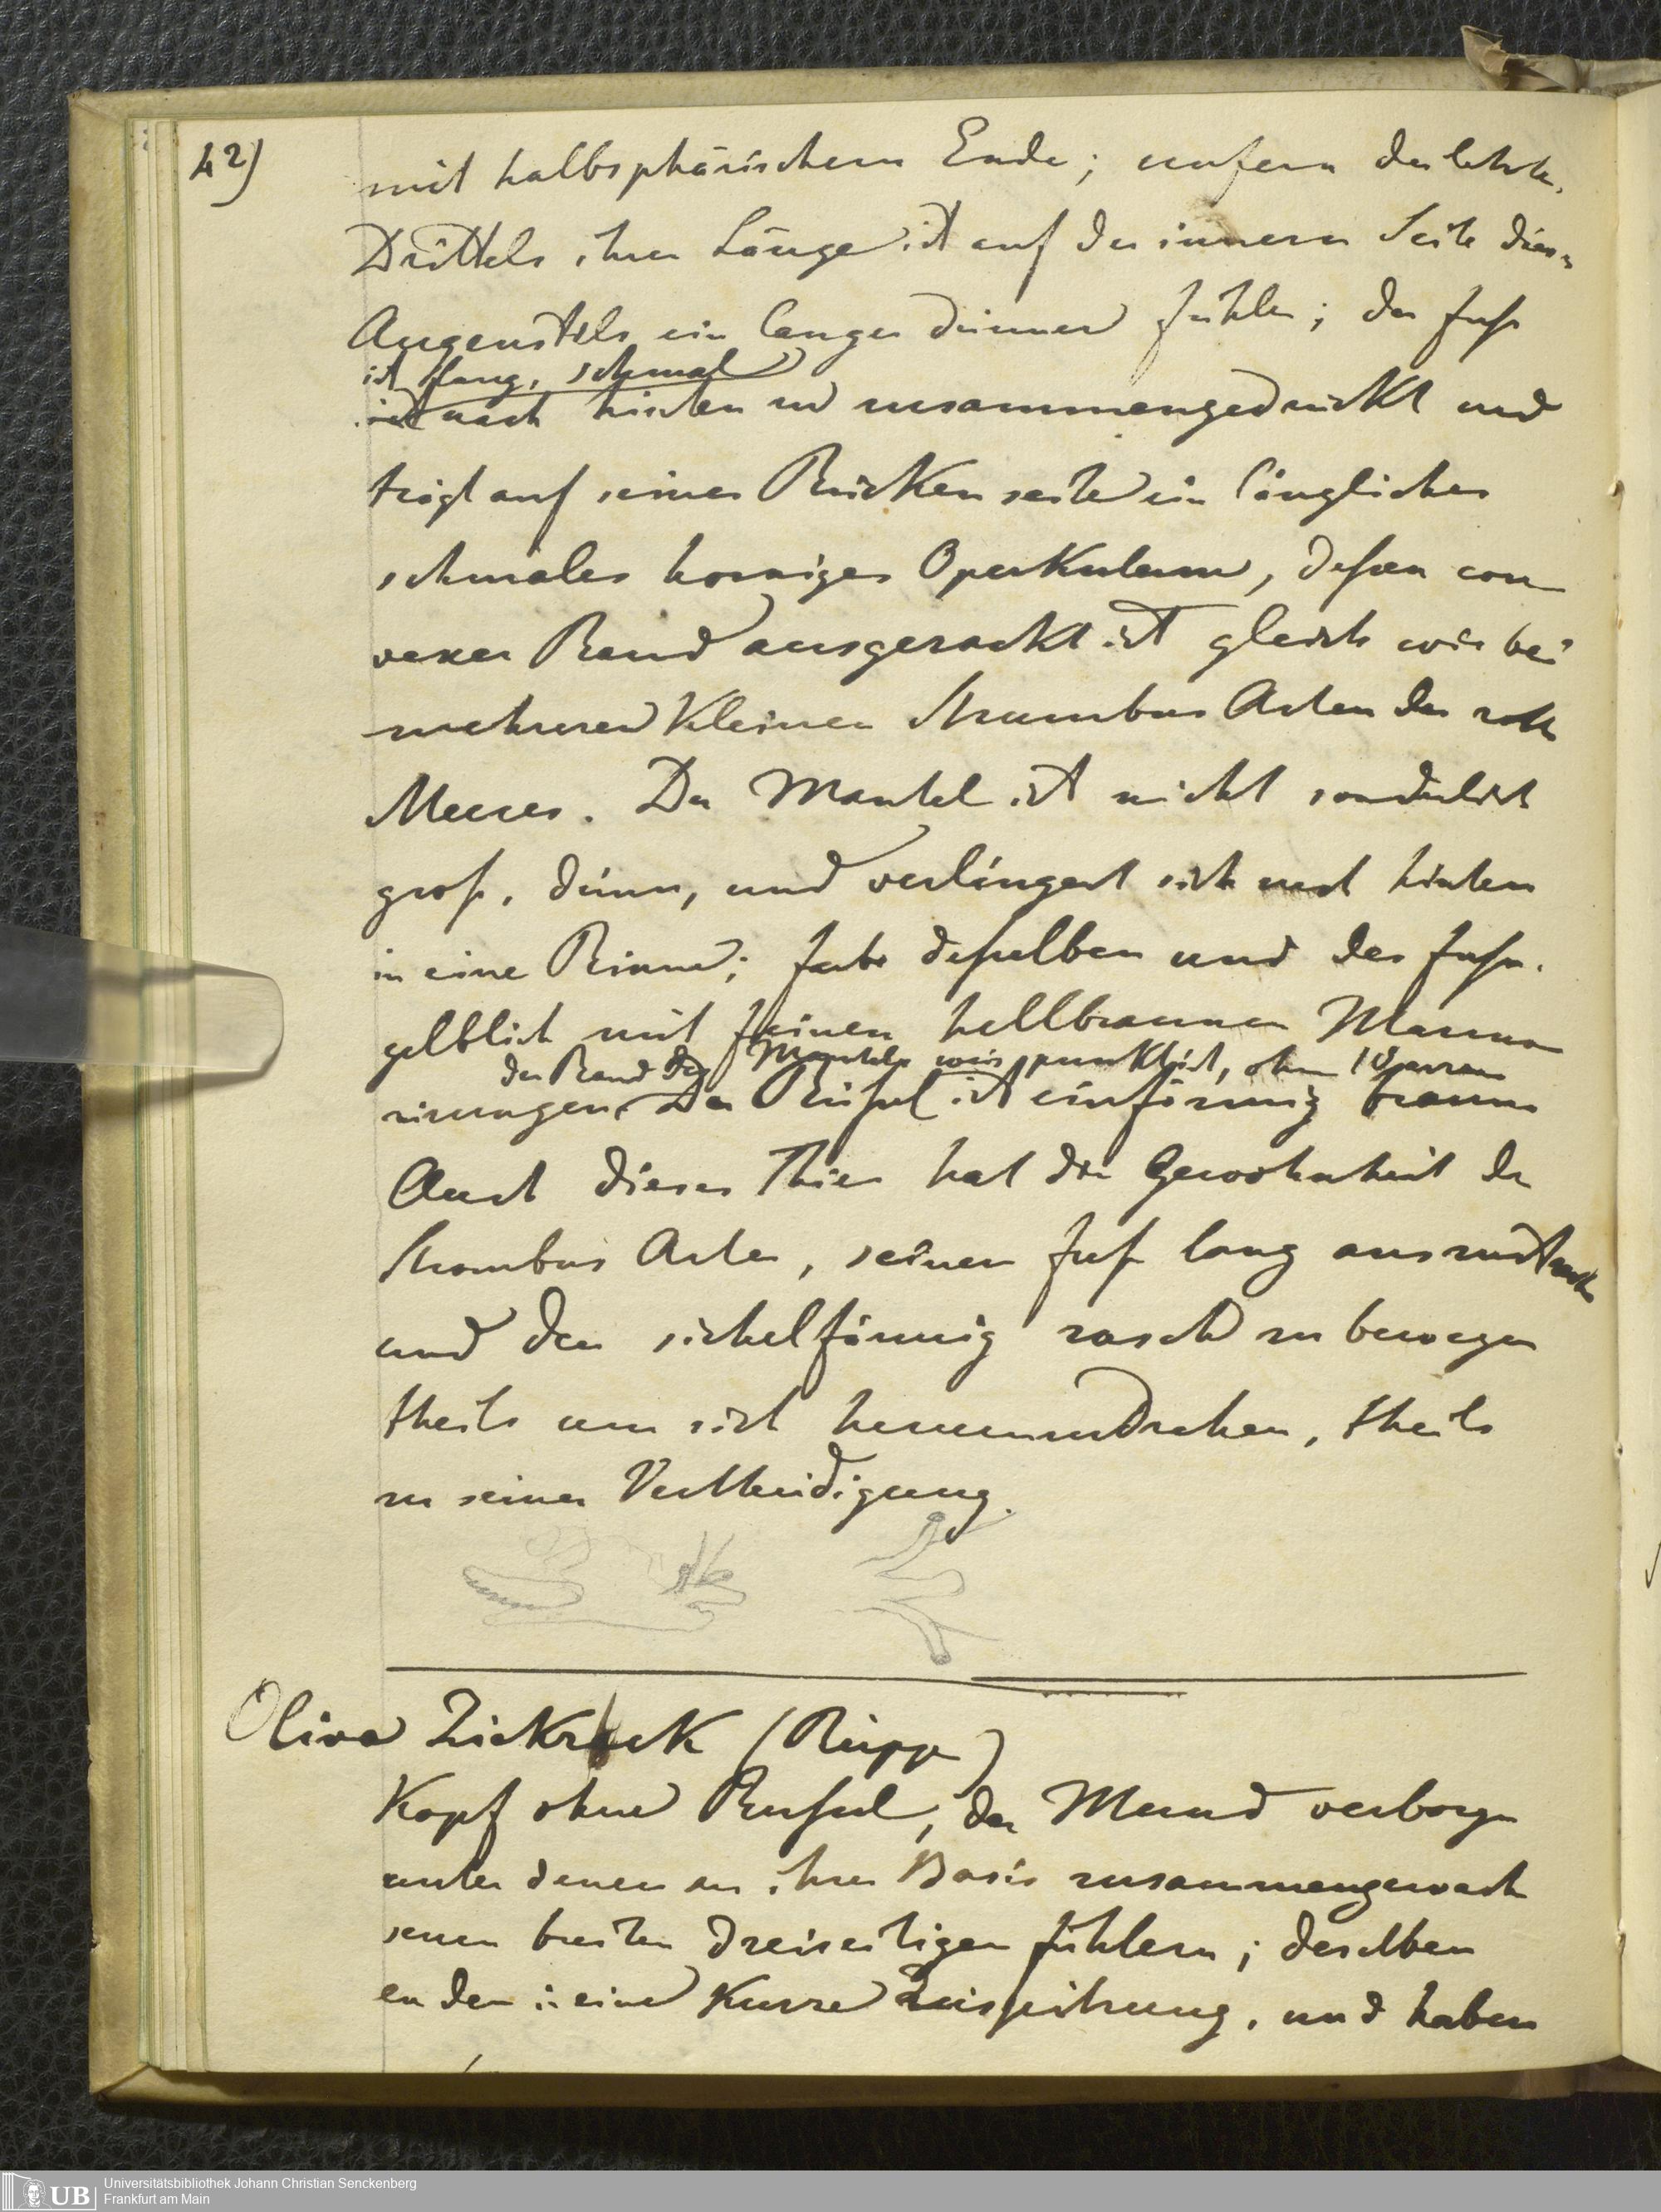 42)
mit halbsphärischem Ende; unfern des letzten
Drittels ihrer Länge ist auf der innern Seite dieses
Augenstils ein langer dünner Fühler; der Fuß
ist lang, schmal
ist nach hinten zu zusammengedrückt und
trägt auf seiner Rückenseite ein längliches
schmales horniges Operkulum, deßen con
vexer Rand ausgezackt ist gleich wie bei
mehreren kleinen Strombus Arten des roth
Meeres. Der Mantel ist nicht sonderlich
groß, dünn, und verlängert sich nach hinten
in eine Rinne; Farbe deßelben und des Fußes
gelblich mit feinen hellbraunen Marmo
der Rand des Mantels weis punktirt, ohne
rirungen. Der Rüßel ist einförmig braun
Auch dieses Thier hat die Gewohnheit der
Strombus Arten, seinen Fuß lang auszustrecken
und den sichelförmig rasch zu bewegen
theils um sich herumzudrehen, theils
zu seiner Vertheidigung.
Oliva Zickzack (Rüpp)
Kopf ohne Rüßel, der Mund verborgen
unter denen an ihrer Basis zusammengewach
senen breiten dreiseitigen Fühlern; dieselben
enden in eine kurze Zuspitzung, und haben
Universitätsbibliothek Johann Christian Senckenberg
UB Frankfurt am Main